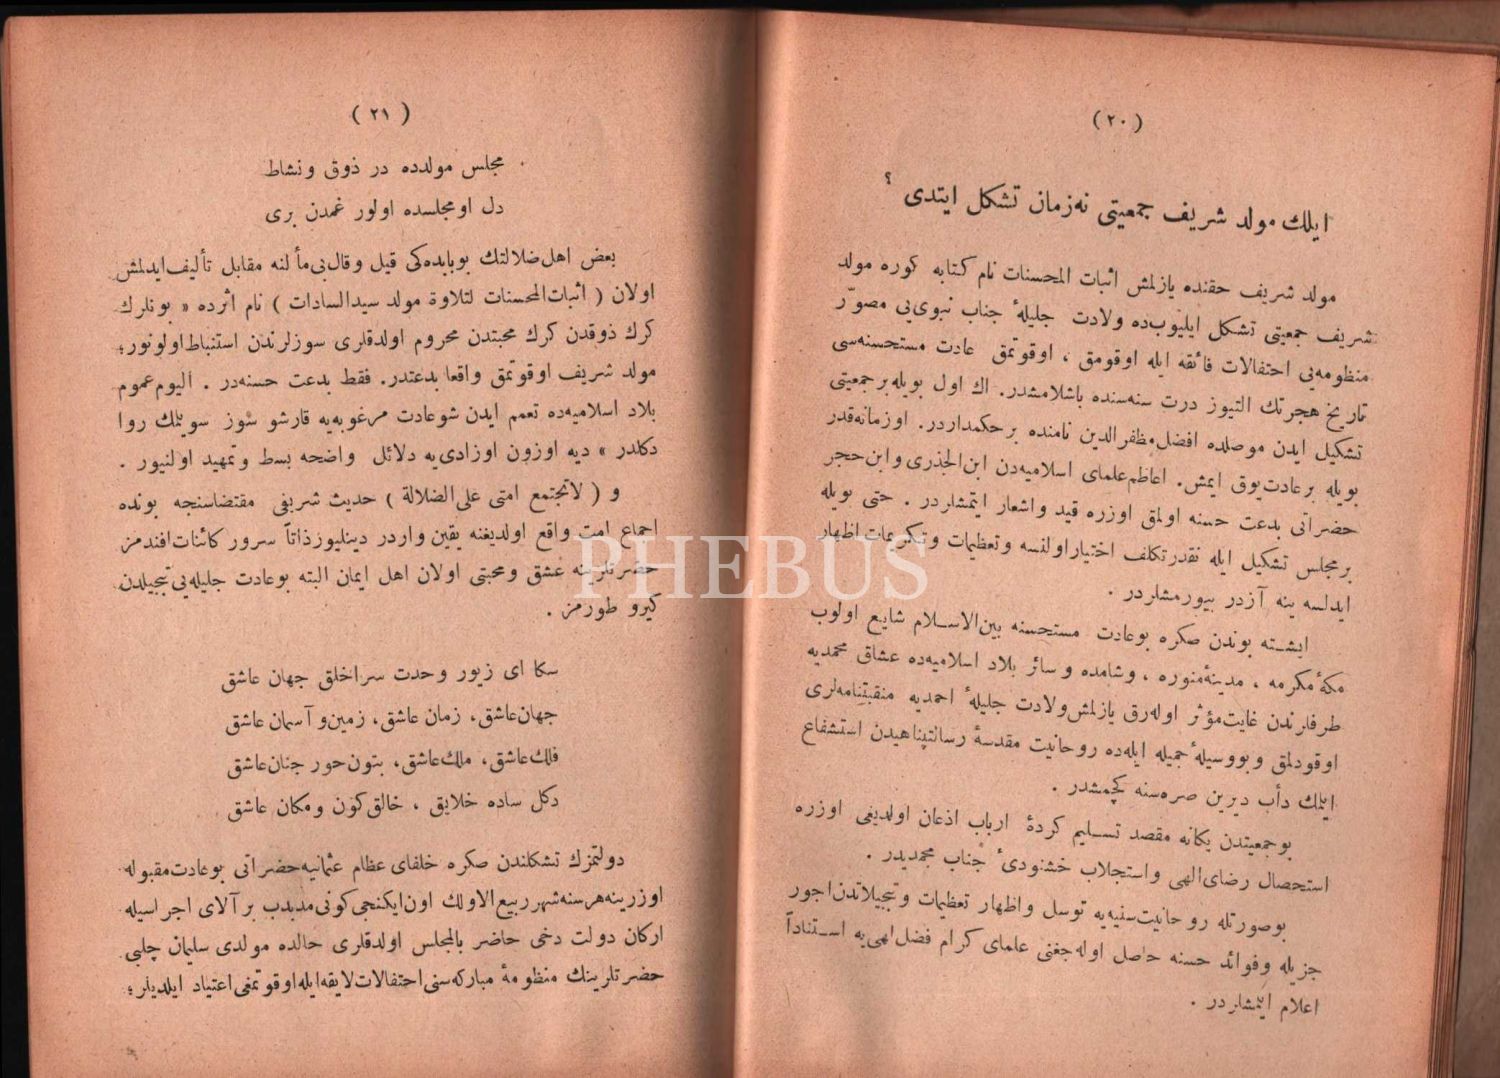 ( ٢٠ )
ايلك مولد شريف جمعيتى نه‌زمان تشكل ايتدى ؟
مولد شريف حقنده يازلمش اثبات المحسنات نام كتابه كوره مولد
شريف جمعيتى تشكل ايليوب‌ده ولادت جليلهٔ جناب نبوى‌يى مصوّر
منظومه‌يى احتفالات فائقه ايله اوقومق ، اوقوتمق عادت مستحسنه‌سى
تاريخ هجرتك التيوز درت سنه‌سنده باشلامشدر. اك اول بويله برجمعيتى
تشكيل ايدن موصلده افضل مظفرالدين نامنده برحكمداردر. اوزمانه‌قدر
بويله برعادت‌يوق ايمش. اعاظم علماى اسلاميه‌دن ابن‌الجذرى وابن‌حجر
حضراتى بدعت حسنه اولمق اوزره قيد واشعار ايتمشلردر . حتى بويله
برمجلس تشكيل ايله نقدرتكلف اختيار اولنسه وتعظيمات وتكريمات اظهار
ايدلسه ينه آزدر بيورمشلردر .
ايشته بوندن صكره بوعادت مستحسنه بين‌الاسلام شايع اولوب
مكهٔ مكرمه ، مدينهٔ‌منوره ، وشامده و سائر بلاد اسلاميه‌ده عشاق محمديه
طرفلرندن غايت‌مؤثر اوله‌رق يازلمش‌ولادت جليلهٔ احمديه منقبتنامه‌لرى
اوقودلمق و بووسيلهٔ جميله ايله‌ده روحانيت مقدسهٔ رسالتپناهيدن استشفاع
ايتمك دأب ديرين صره‌سنه كچمشدر .
بوجمعيتدن يكانه مقصد تسليم كردهٔ ارباب اذعان اولديغى اوزره
استحصال رضاى‌الهى واستجلاب خشنودىٔ جناب محمديدر .
بوصورتله روحانيت‌سنيه‌يه توسل واظهار تعظيمات وتبجيلاتدن‌اجور
جزيله وفوائد حسنه حاصل اوله‌جغنى علماى كرام فضل‌الهى‌يه استناداً
اعلام ايتمشلردر .
( ٢١ )
مجلس مولدده در ذوق ونشاط
دل اومجلسده اولور غمدن برى
بعض اهل‌ضلالتك بوبابده‌كى قيل وقال‌بى‌مألنه مقابل تأليف‌ايدلمش
اولان ( اثبات‌المحسنات لتلاوة مولد سيدالسادات ) نام اثرده « بونلرك
كرك ذوقدن كرك محبتدن محروم اولدقلرى سوزلرندن استنباط‌اولونور؛
مولد شريف اوقوتمق واقعا بدعتدر. فقط بدعت حسنه‌در . اليوم‌عموم
بلاد اسلاميه‌ده تعمم ايدن شوعادت مرغوبه‌يه قارشو سوز سويلمك روا
دكلدر » ديه اوزون اوزادى‌يه دلائل واضحه بسط وتمهيد اولنيور .
و ( لاتجتمع امتى على‌الضلالة ) حديث شريفى مقتضاسنجه بونده
اجماع امت واقع اولديغنه يقين واردر دينليور.ذاتاً سرور كائنات‌افندمز
حضرتلرينه عشق ومحبتى اولان اهل ايمان البته بوعادت جليله‌يى تبجيلدن
كيرو طورمز .
سكا اى زيور وحدت سراخلق جهان عاشق
جهان‌عاشق، زمان عاشق، زمين و آسمان عاشق
فلك‌عاشق، ملك‌عاشق، بتون‌حور جنان‌عاشق
دكل ساده خلايق ، خالق‌كون ومكان عاشق
دولتمزك تشكلندن صكره خلفاى عظام عثمانيه‌حضراتى بوعادت‌مقبوله
اوزرينه‌هرسنه‌شهر ربيع‌الاولك اون‌ايكنجى‌كونى‌مدبدب برآلاى اجراسيله
اركان دولت دخى حاضر بالمجلس اولدقلرى حالده مولدى سليمان چلبى
حضرتلرينك منظومهٔ مباركه‌سنى‌احتفالات‌لايقه‌ايله‌اوقوتمغى‌اعتياد ايلديلر؛
PHEBUS